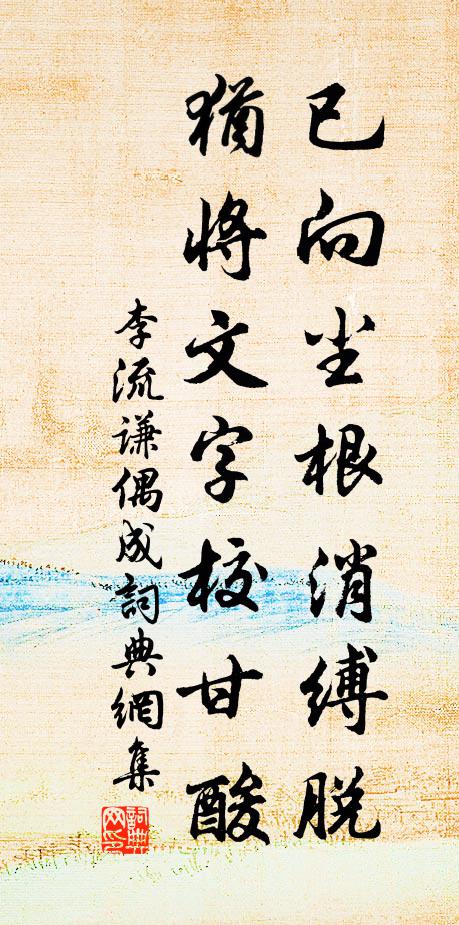 已向尘根消縛脱
猶将文字校甘酸
李流謙偶成詞典網集
詞典
网印